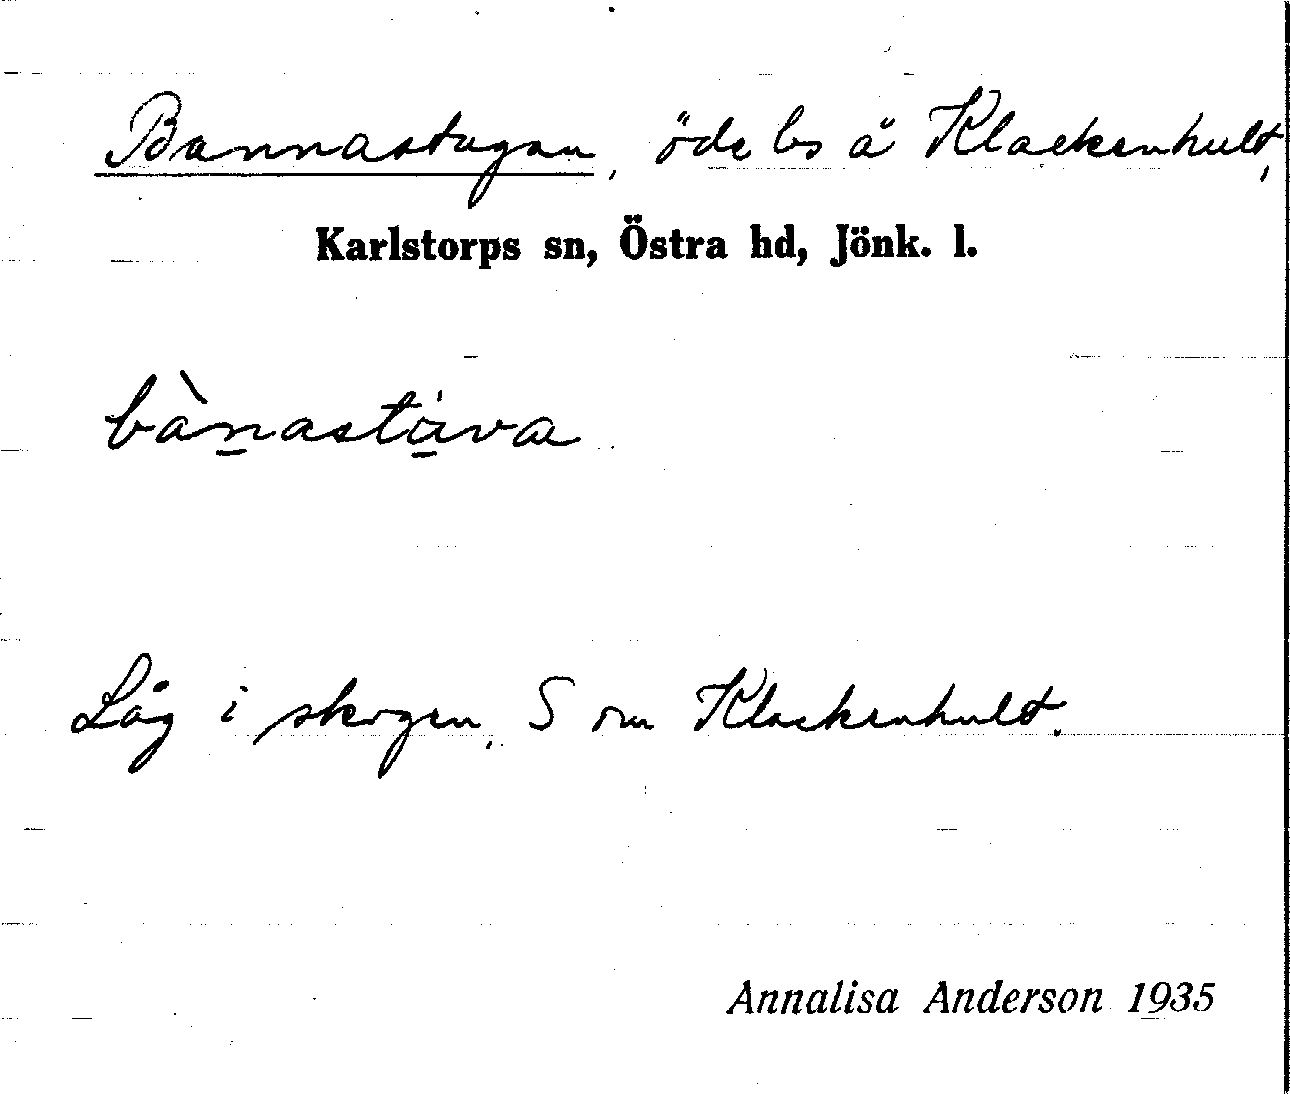 Bannastugan, öde ls å Klackenhult,
Karlstorps sn, Östra hd, Jönk. l.
bànastu̇va
Låg i skogen, S om Klackenhult.
Annalisa Anderson 1935